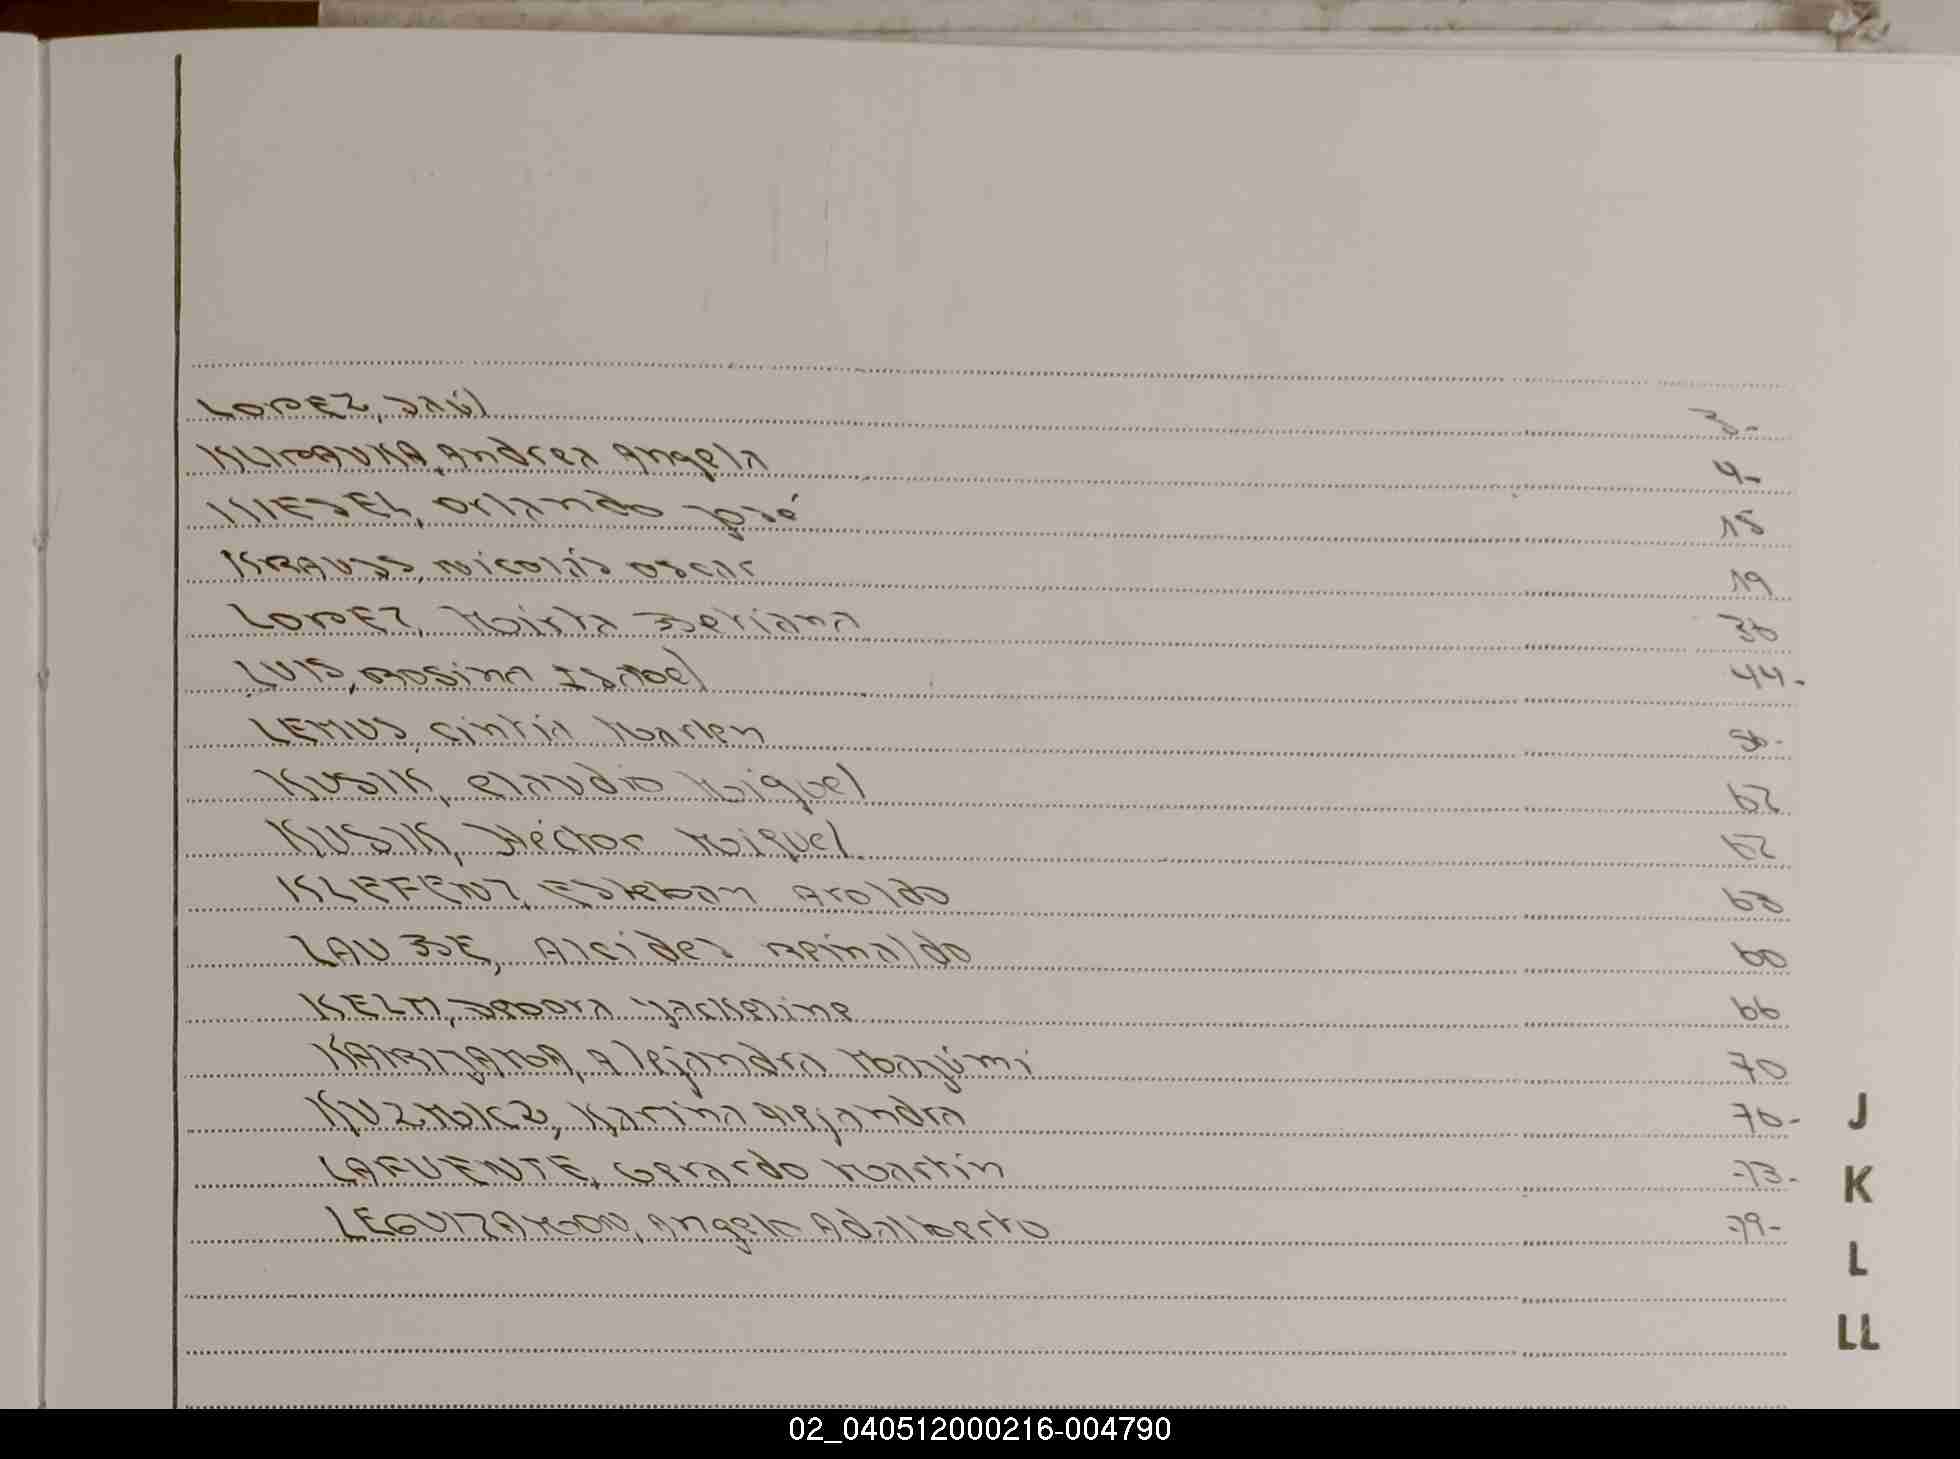 LOPEZ, Saúl 3-
KLIPAUKA, Andrea Angela 4-
KIESEL, Orlando José 18
KRAUSS, Nicolás Oscar 19
LOPEZ, Mirta 38
LUIS, Rosina Isabel 44-
LEMUS, Cintia Marlen
KUSIK, Claudio Miguel 57
KUSIK, Héctor Miguel 57
KLEFENZ, Esteban Aroldo 58
LAUSSE, Alcides Reinaldo 60
KELM, Debora Jackeline 66
Alejandra Mayúmi 70
Karina Alejandra 70-
LAFUENTE, Gerardo Martín 73-
LEGUIZAMON, Angelo Adalberto 79-
J
K
L
LL
02_040512000216-004790